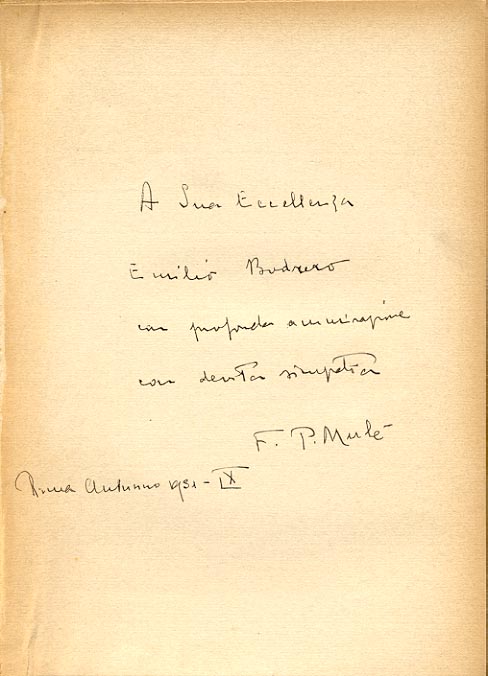 A Sua Eccellenza
Emilio Bodrero
con profonda ammirazione
con devota simpatia
F. P. Mulè
Roma Autunno 1931 - IX